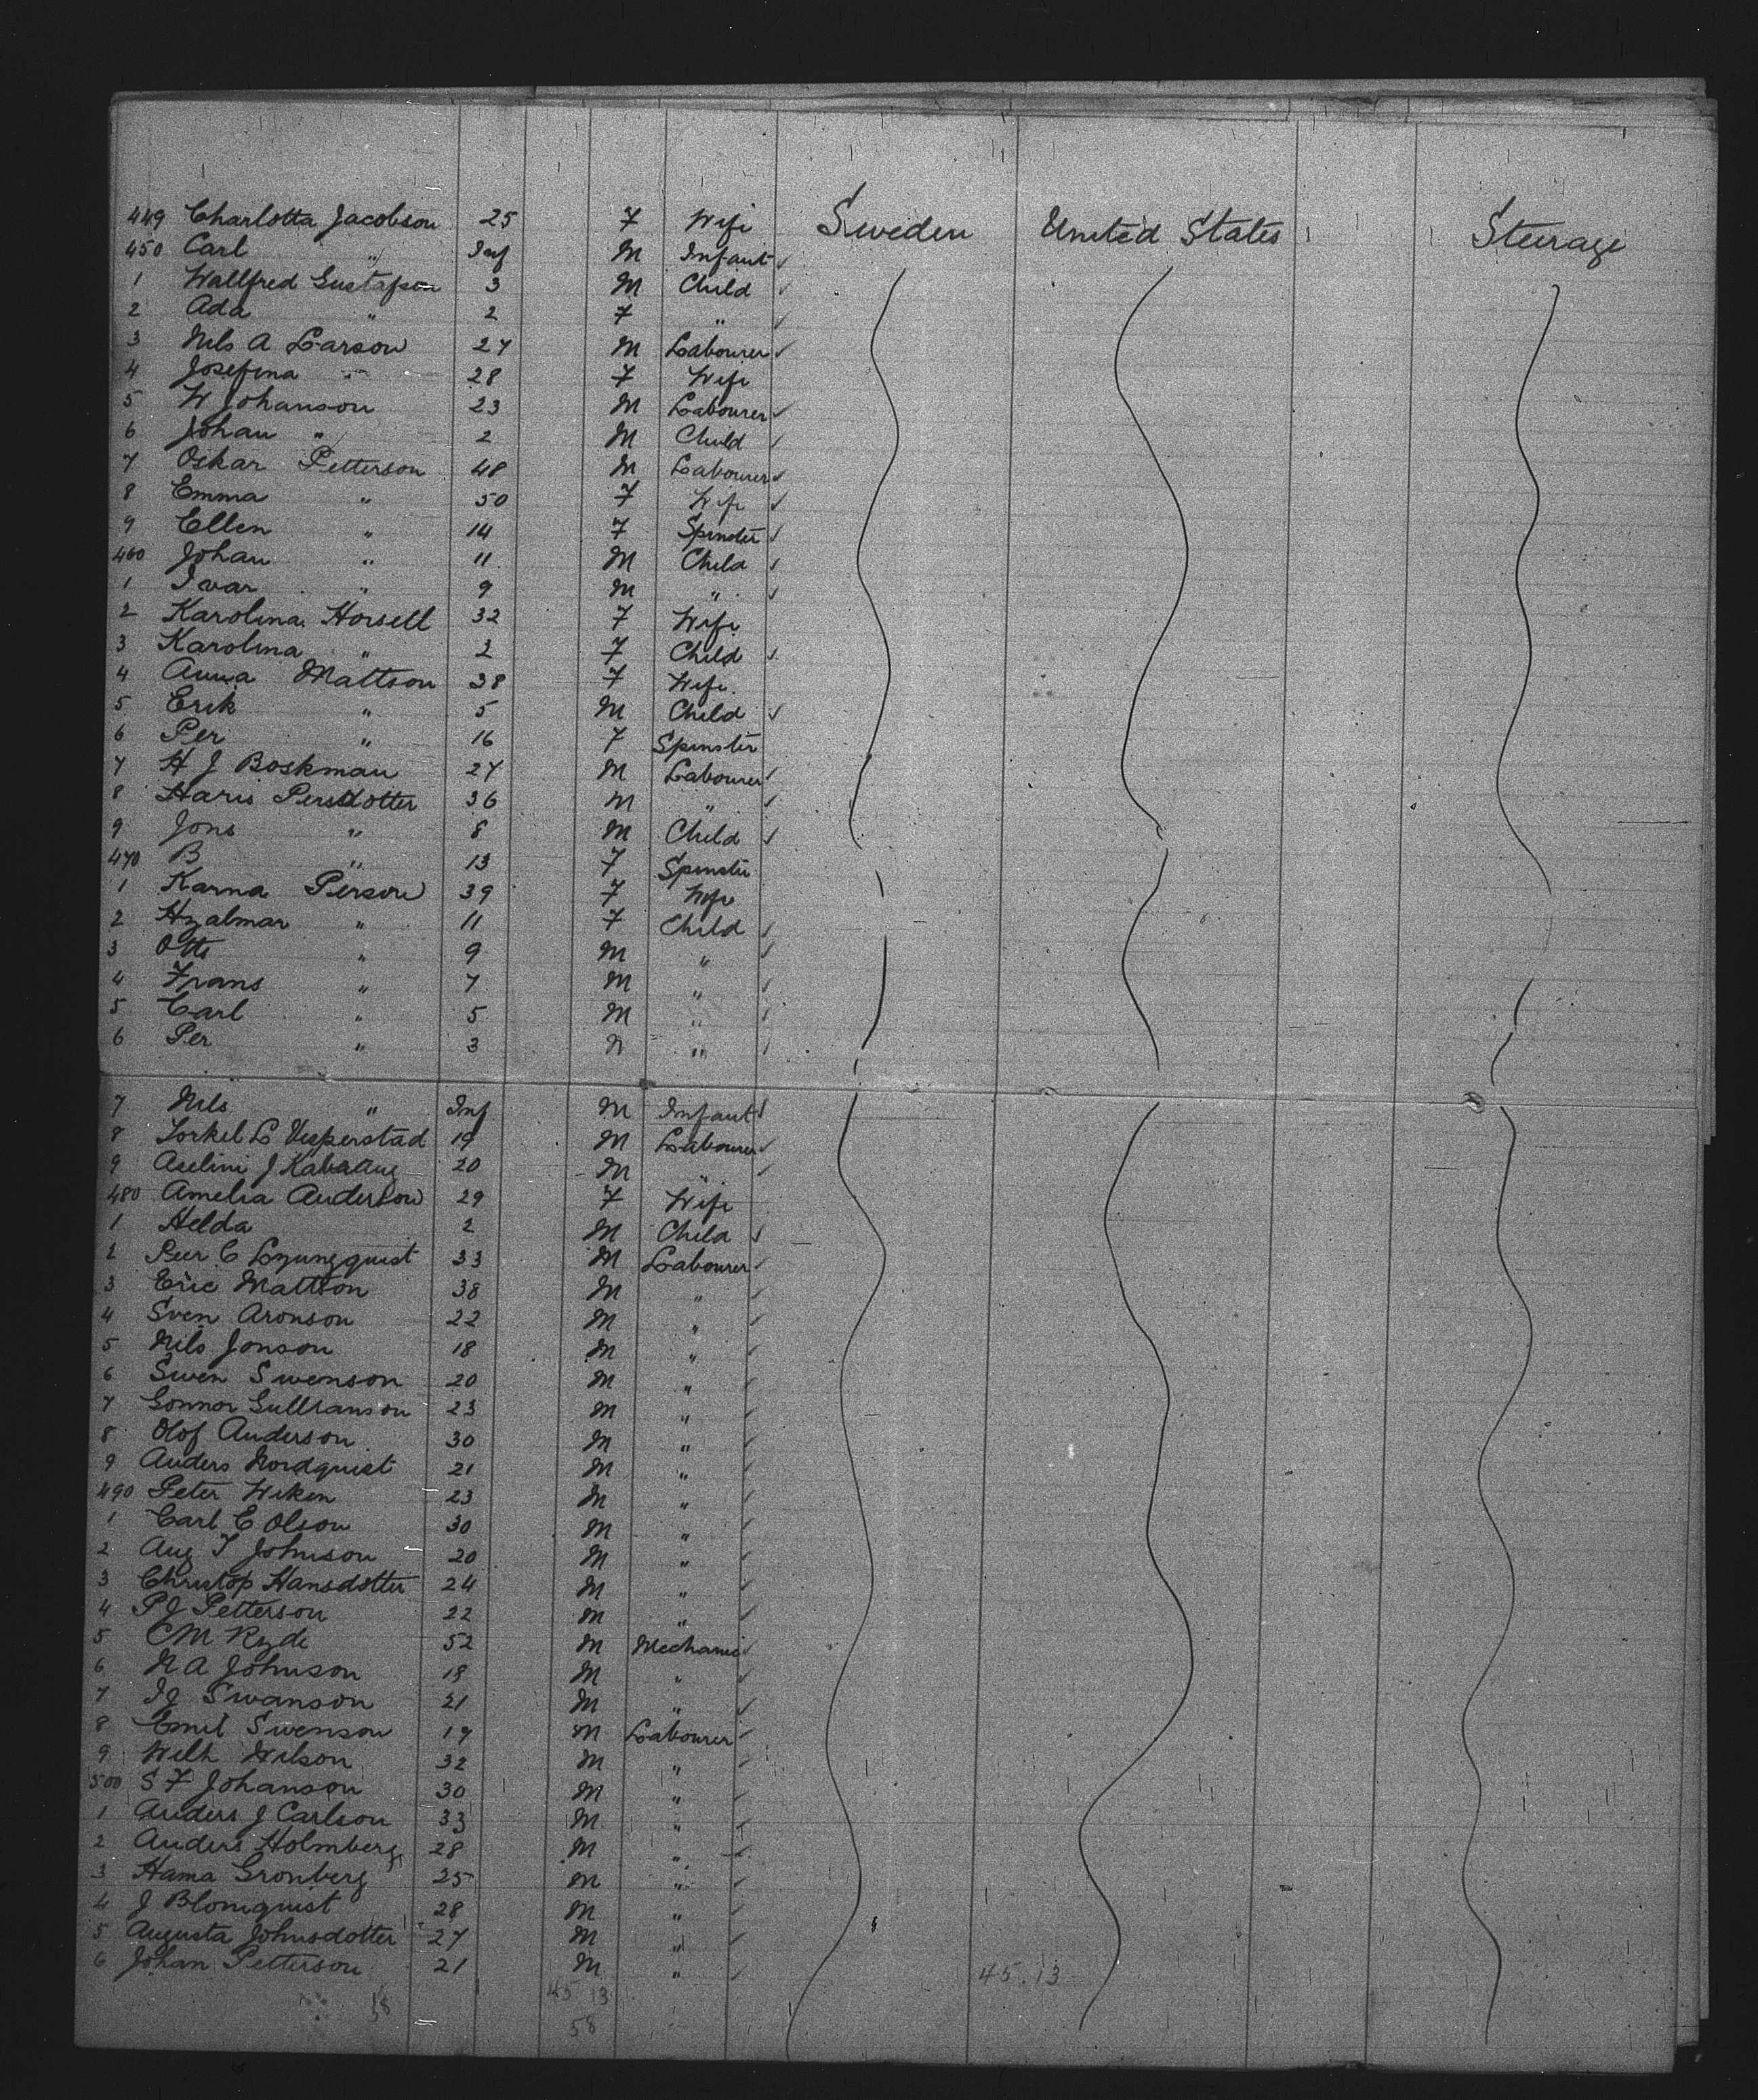 449 Charlotta Jacobson 25 F Wife Sweden United States Steerage
450 Carl " Inf M Infant
1 Wallfred Gustafson 3 M Child
2 Ada " 2 F "
3 Nils A Larson 27 M Labourer
4 Josefina " 28 F Wife
5 W Johanson 23 M Labourer
6 Johan " 2 M Child
7 Oskar Petterson 48 M Labourer
8 Emma " 50 F Wife
9 Ellen " 14 F Spinster
460 Johan " 11 M Child
1 Ivar " 9 M "
2 Karolina Horsell 32 F Wife
3 Karolina " 2 F Child
4 Anna Mattson 38 F Wife
5 Erik " 5 M Child
6 Per " 16 F Spinster
7 H J Boskman 27 M Labourer
8 Haris Persdotter 36 M "
9 Jons " 8 M Child
470 B " 13 F Spinster
1 Karna Person 39 F Wife
2 Hjalmar " 11 F Child
3 Otto " 9 M "
4 Frans " 7 M "
5 Carl " 5 M "
6 Per " 3 M "
7 Nils " Inf M Infant
8 Torkel L Vesperstad 19 M Labourer
9 J 20 M "
480 Amelia Anderson 29 F Wife
1 Helda 2 M Child
2 Peer C Ljungquist 33 M Labourer
3 Eric Mattson 38 M "
4 Sven Aronson 22 M "
5 Nils Jonson 18 M "
6 Swen Swenson 20 M "
7 Gonnor Gullranson 23 M "
8 Olof Anderson 30 M "
9 Anders Nordquist 21 M "
490 Peter Wiken 23 M "
1 Carl E Olson 30 M "
2 Aug T Johnson 20 M "
3 Christop Hansdotter 24 M "
4 P J Petterson 22 M "
5 C M Ryde 52 M Mechanic
6 N A Johnson 18 M "
7 Swanson 21 M "
8 Emil Swenson 19 M Labourer
9 Wilh Nilson 32 M "
500 S F Johanson 30 M "
1 Anders J Carlson 33 M "
2 Anders Holmberg 28 M "
3 Hama Gronberg 25 M "
4 J Blomquist 28 M "
5 Augusta Johnsdotter 27 M "
6 Johan Petterson 21 M "
45 13 45.13
58 58